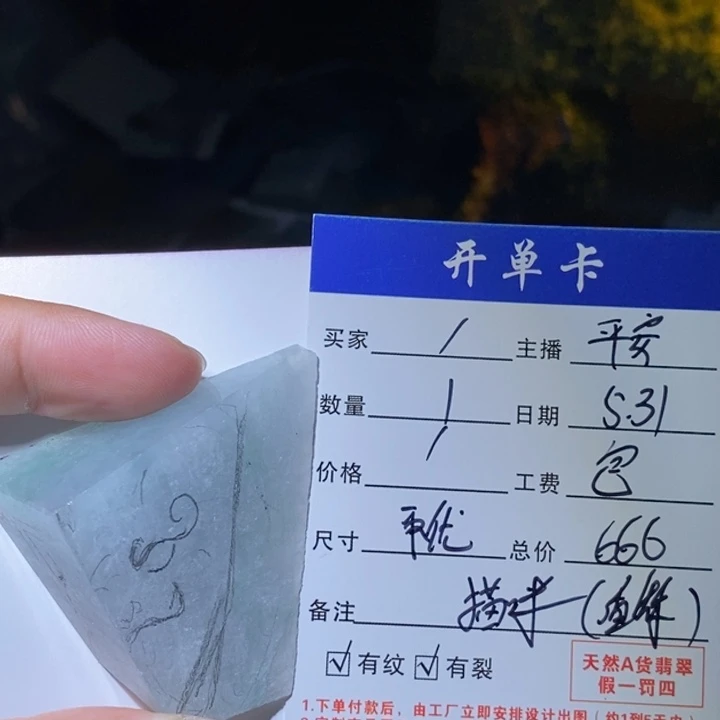 开单卡
买家 / 主播 平安
数量 1 日期 5.31
价格 / 工费 包
尺寸 工费 总价 666
备注
☑有纹 ☑有裂
天然A货翡翠
假一罚四
1.下单付款后,由工厂立即安排设计出图(约1到5天内)